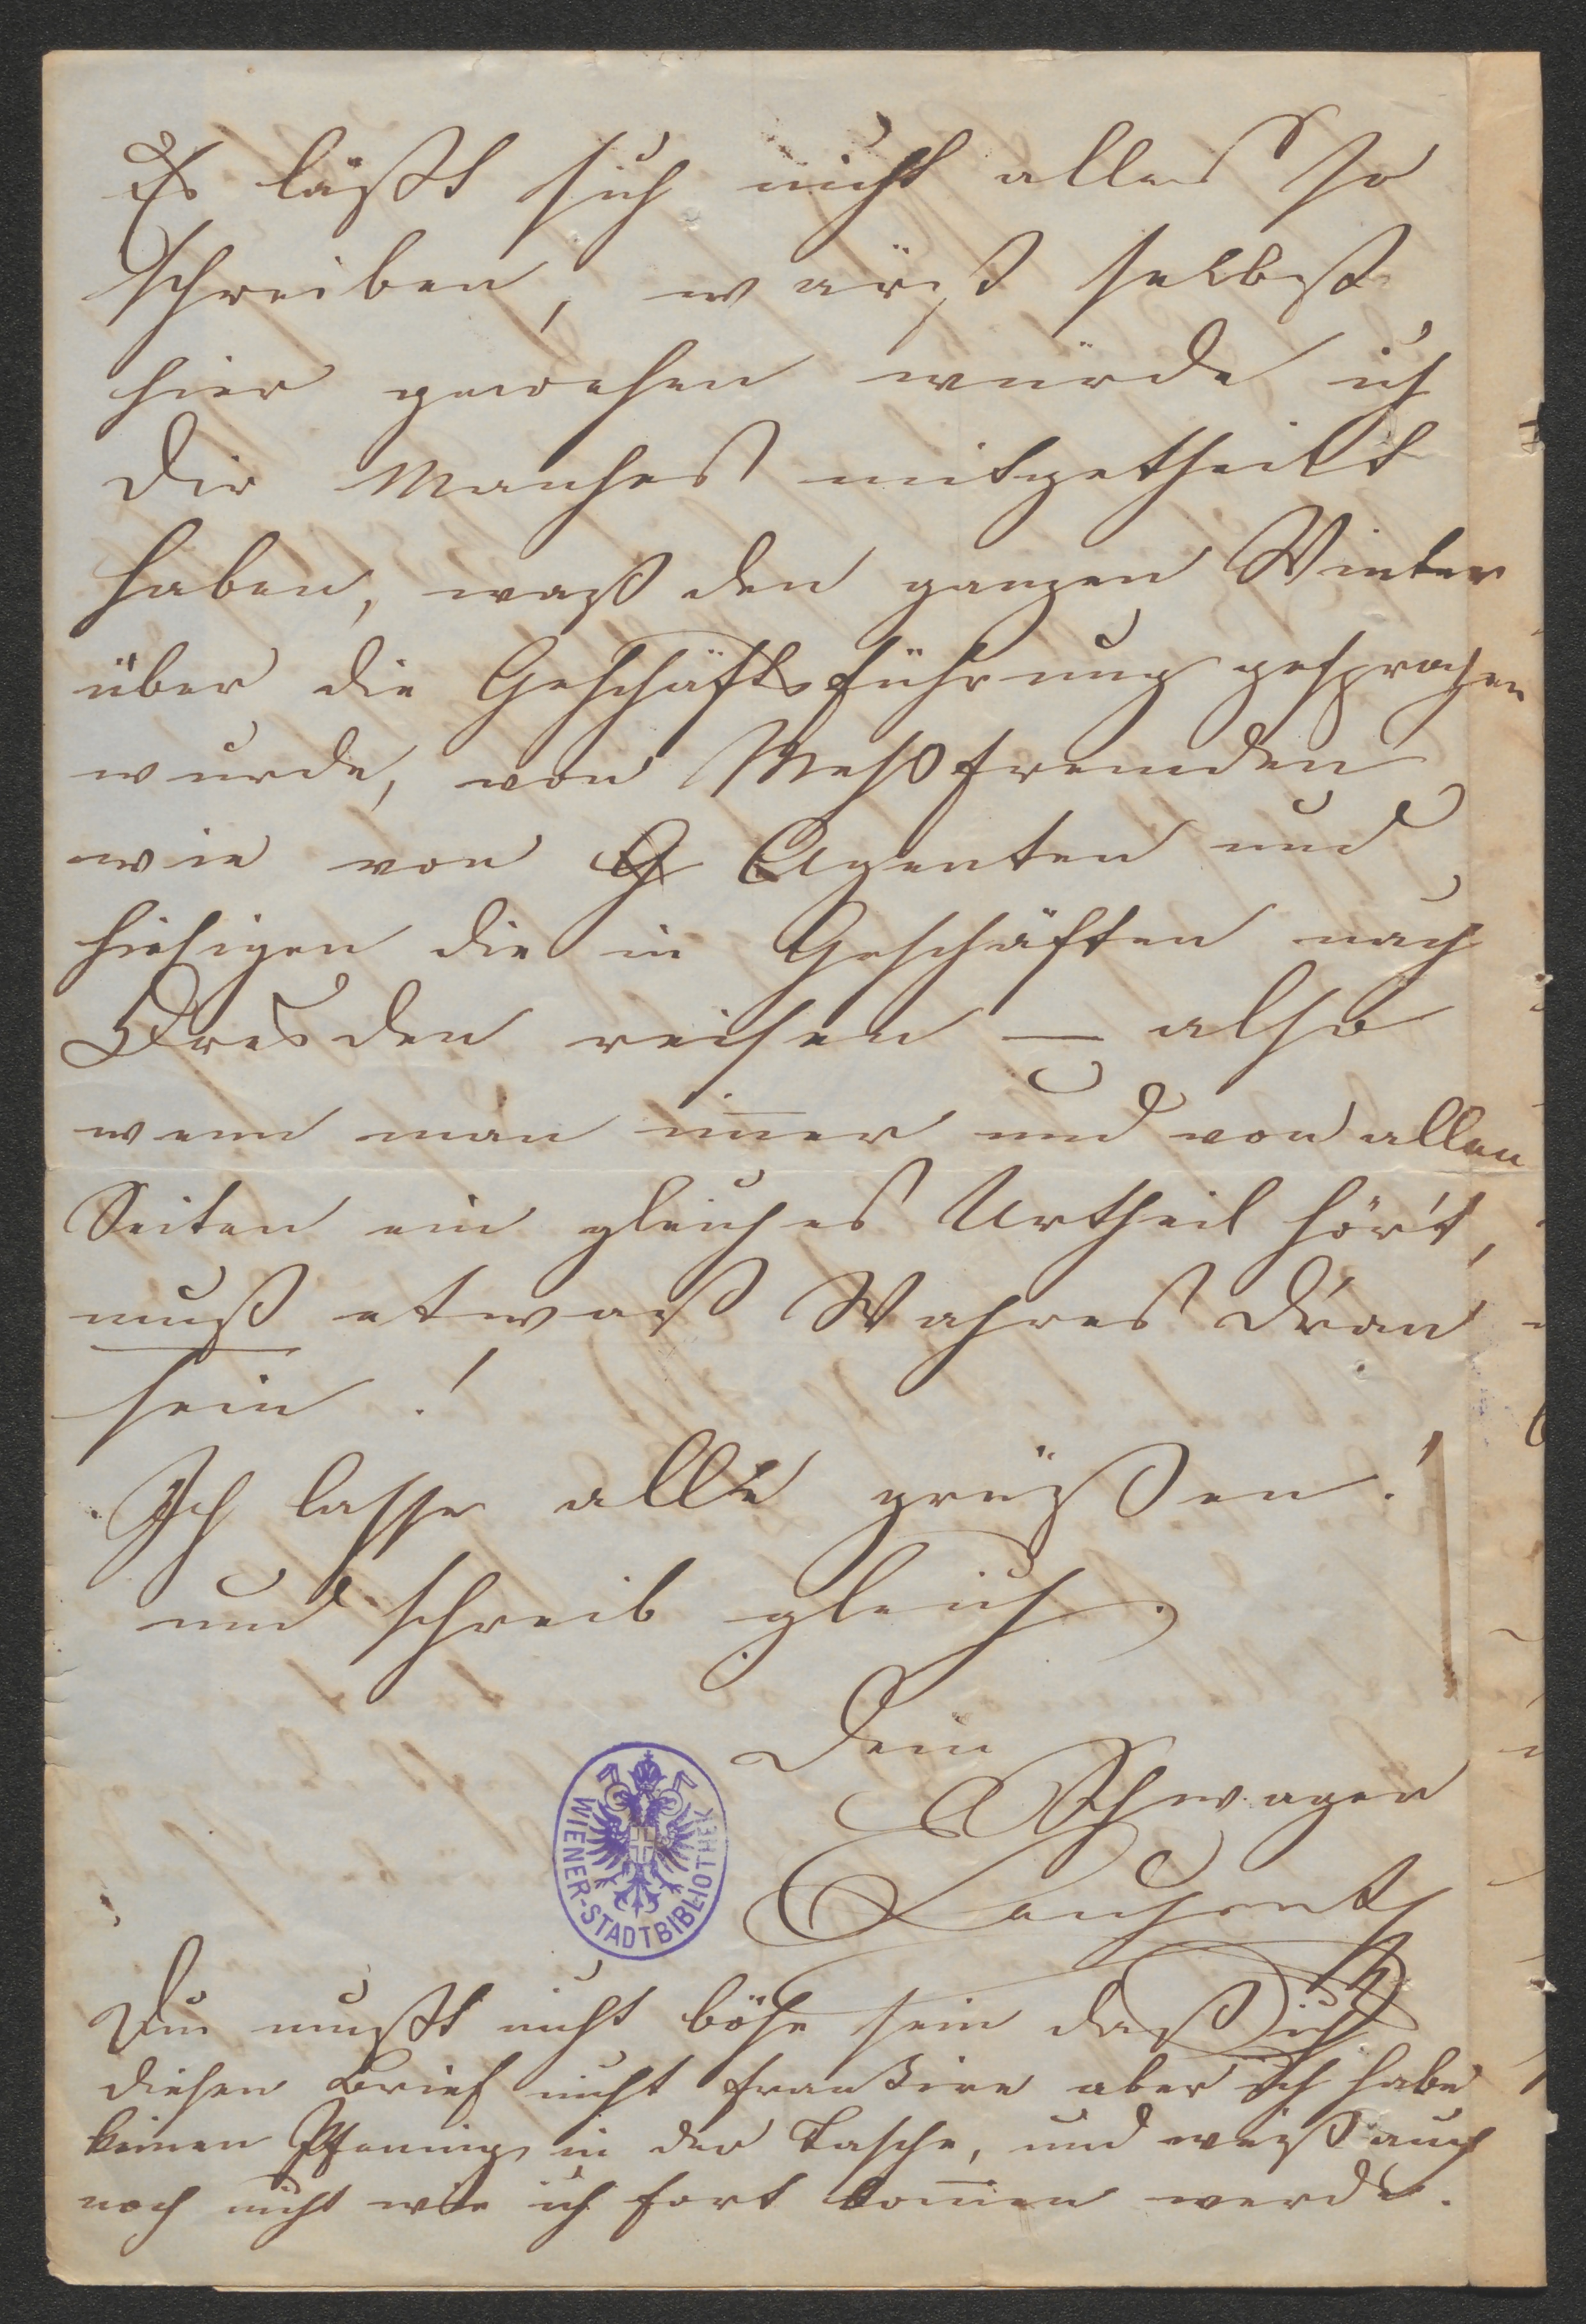 Es läßt sich nicht alles so
schreiben, wärst selbst
hier gewesen würde ich
Dir Manches mitgetheilt
haben, waß den ganzen Winter
über die Geschäftsführung gesprochen
wurde, von Meßfremden
wie von G Agenten und
hiesigen die in Geschäften nach
Dresden reisen — also
wenn man im̅er und von allen
Seiten ein gleiches Urtheil hör't,
muß etwaß Wahres d'ran
sein!
Ich lasse alle grüßen!
und schreib gleich.
Dein
Schwager
WIENER-STADTBIBLIOTHEK
Du mußt nicht böse sein daß ich
diesen Brief nicht frankire aber ich habe
keinen Pfening in der Tasche, und weiß auch
noch nicht wie ich fort kom̅en werde.